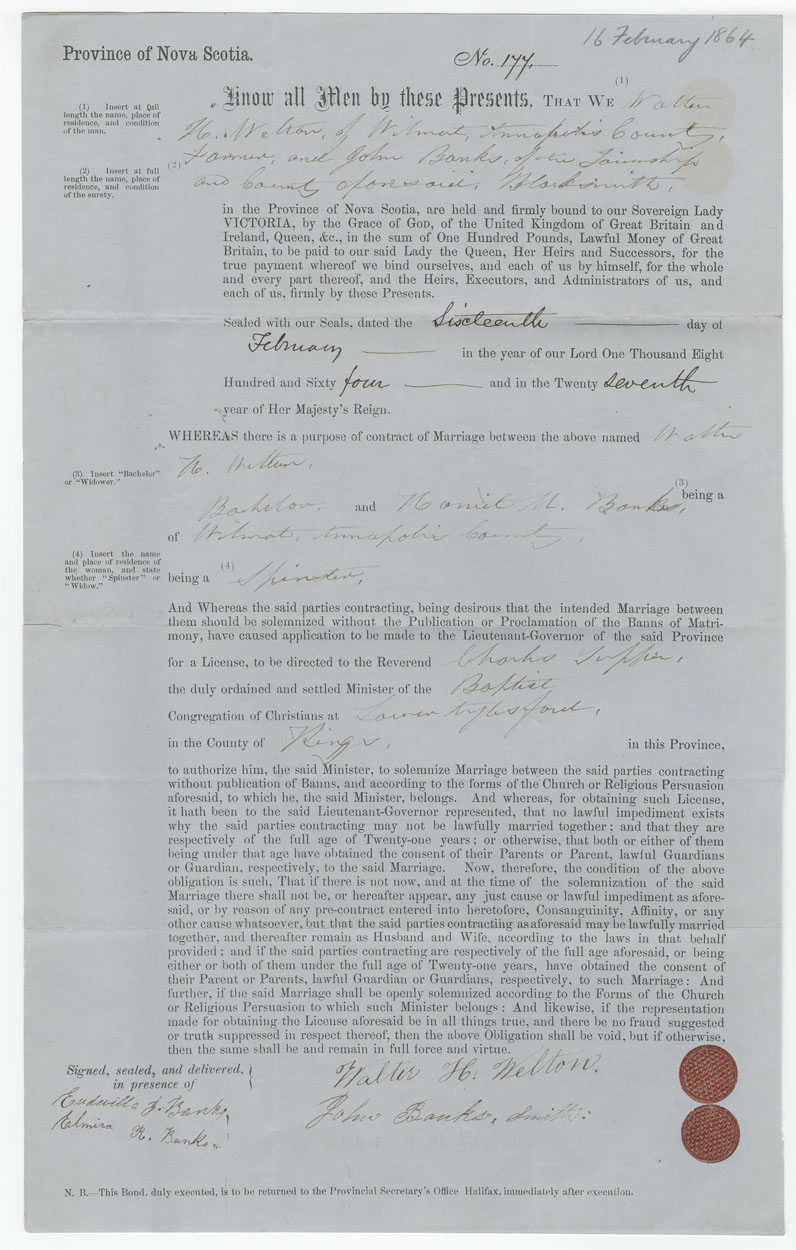 16 February 1864
Province of Nova Scotia.
No. 177.
(1) Insert at full
length the name, place of
residence, and condition
of the man.
(2) Insert at full
length the name, place of
residence, and condition
of the surety.
Know all Men by these Presents, THAT WE (1) Walter
H. Welton, of Wilmot, Annapolis County,
Farmer, and (2) John Banks, of the Township
and County aforesaid, Blacksmith,
in the Province of Nova Scotia, are held and firmly bound to our Sovereign Lady
VICTORIA, by the Grace of GOD, of the United Kingdom of Great Britain and
Ireland, Queen, &c., in the sum of One Hundred Pounds, Lawful Money of Great
Britain, to be paid to our said Lady the Queen, Her Heirs and Successors, for the
true payment whereof we bind ourselves, and each of us by himself, for the whole
and every part thereof, and the Heirs, Executors, and Administrators of us, and
each of us, firmly by these Presents.
Sealed with our Seals, dated the Sixteenth day of
February in the year of our Lord One Thousand Eight
Hundred and Sixty four and in the Twenty seventh
year of Her Majesty's Reign.
WHEREAS there is a purpose of contract of Marriage between the above named Walter
H. Welton,
(3) Insert "Bachelor"
or "Widower."
(3) being a
Bachelor, and Harriet M. Banks,
of Wilmot, Annapolis County,
(4) Insert the name
and place of residence of
the woman, and state
whether "Spinster" or
"Widow."
being a (4) Spinster,
And Whereas the said parties contracting, being desirous that the intended Marriage between
them should be solemnized without the Publication or Proclamation of the Banns of Matri-
mony, have caused application to be made to the Lieutenant-Governor of the said Province
for a License, to be directed to the Reverend Charles Tupper,
the duly ordained and settled Minister of the Baptist
Congregation of Christians at Lower Aylesford,
in the County of Kings, in this Province,
to authorize him, the said Minister, to solemnize Marriage between the said parties contracting
without publication of Banns, and according to the forms of the Church or Religious Persuasion
aforesaid, to which he, the said Minister, belongs. And whereas, for obtaining such License,
it hath been to the said Lieutenant-Governor represented, that no lawful impediment exists
why the said parties contracting may not be lawfully married together; and that they are
respectively of the full age of Twenty-one years; or otherwise, that both or either of them
being under that age have obtained the consent of their Parents or Parent, lawful Guardians
or Guardian, respectively, to the said Marriage. Now, therefore, the condition of the above
obligation is such, That if there is not now, and at the time of the solemnization of the said
Marriage there shall not be, or hereafter appear, any just cause or lawful impediment as afore-
said, or by reason of any pre-contract entered into heretofore, Consanguinity, Affinity, or any
other cause whatsoever, but that the said parties contracting as aforesaid may be lawfully married
together, and thereafter remain as Husband and Wife, according to the laws in that behalf
provided; and if the said parties contracting are respectively of the full age aforesaid, or being
either or both of them under the full age of Twenty-one years, have obtained the consent of
their Parent or Parents, lawful Guardian or Guardians, respectively, to such Marriage: And
further, if the said Marriage shall be openly solemnized according to the Forms of the Church
or Religious Persuasion to which such Minister belongs: And likewise, if the representation
made for obtaining the License aforesaid be in all things true, and there be no fraud suggested
or truth suppressed in respect thereof, then the above Obligation shall be void, but if otherwise,
then the same shall be and remain in full force and virtue.
Signed, sealed, and delivered,
in presence of
Walter H. Welton.
J. Banks
John Banks, Smith:
Elmira R. Banks.
N. B.—This Bond, duly executed, is to be returned to the Provincial Secretary's Office Halifax, immediately after execution.